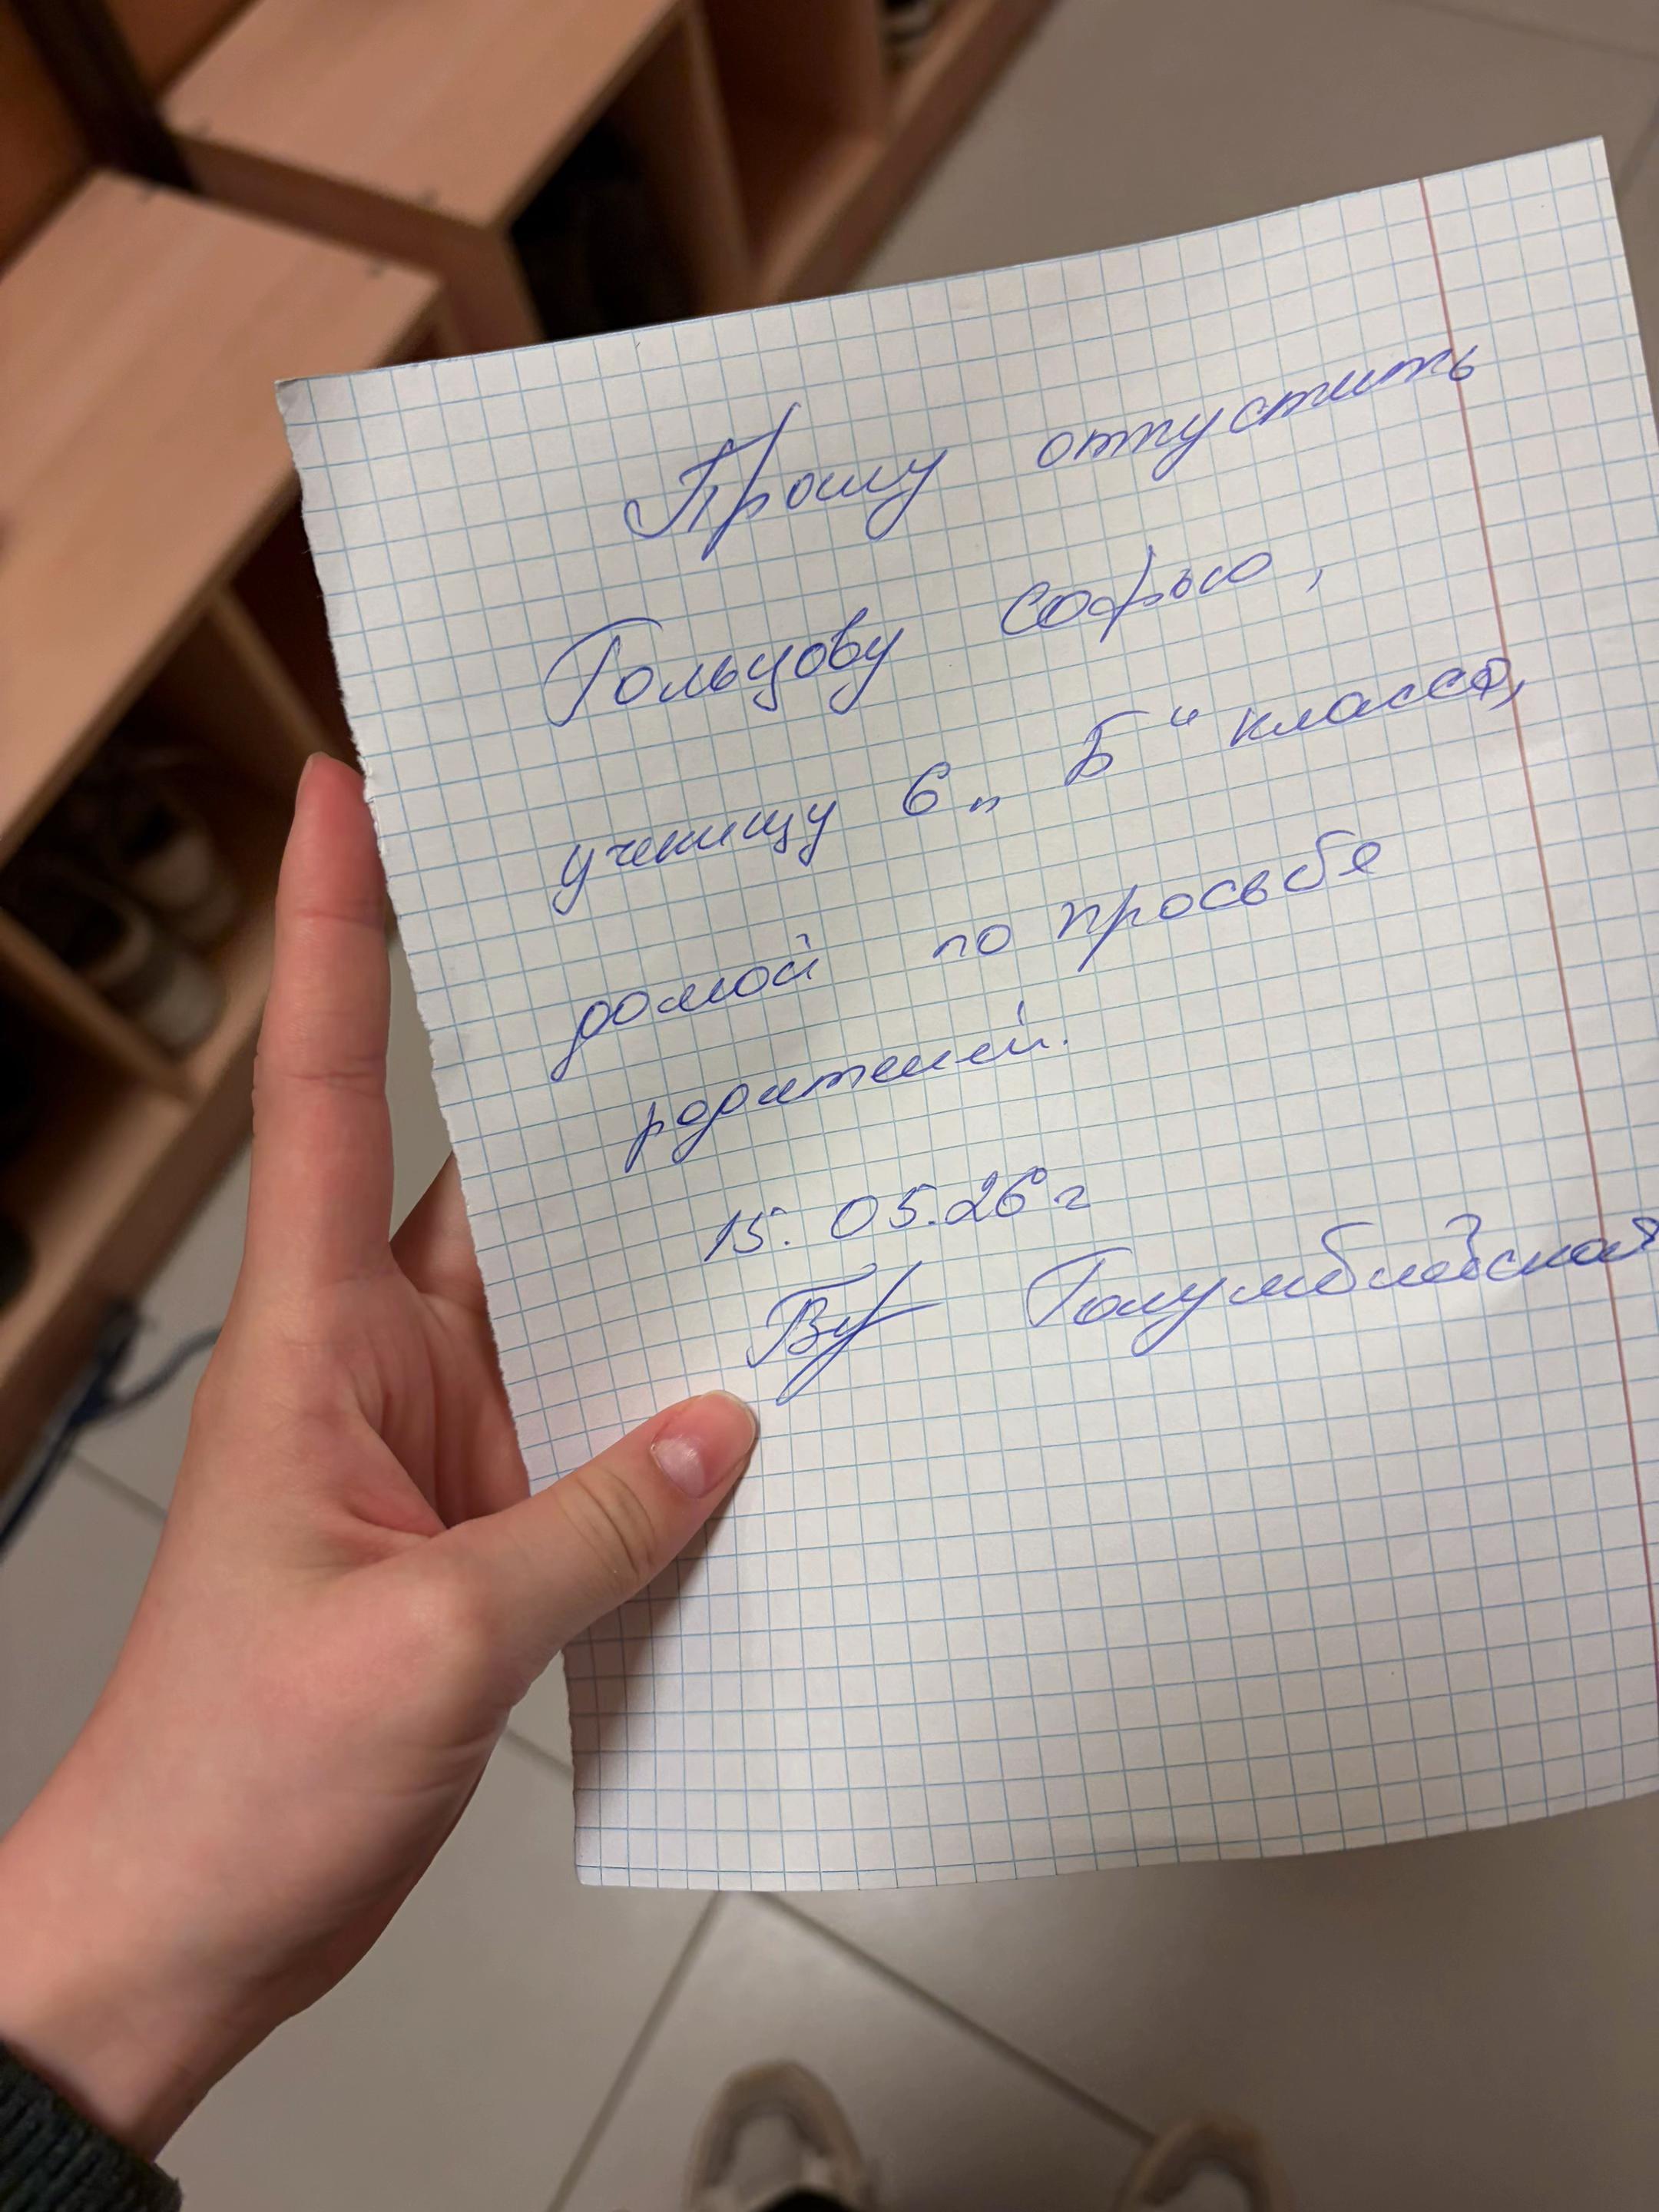 Прошу отпустить
Гольцову Софью,
ученицу 6 „Б“ класса,
домой по просьбе
родителей.
15.05.26 г